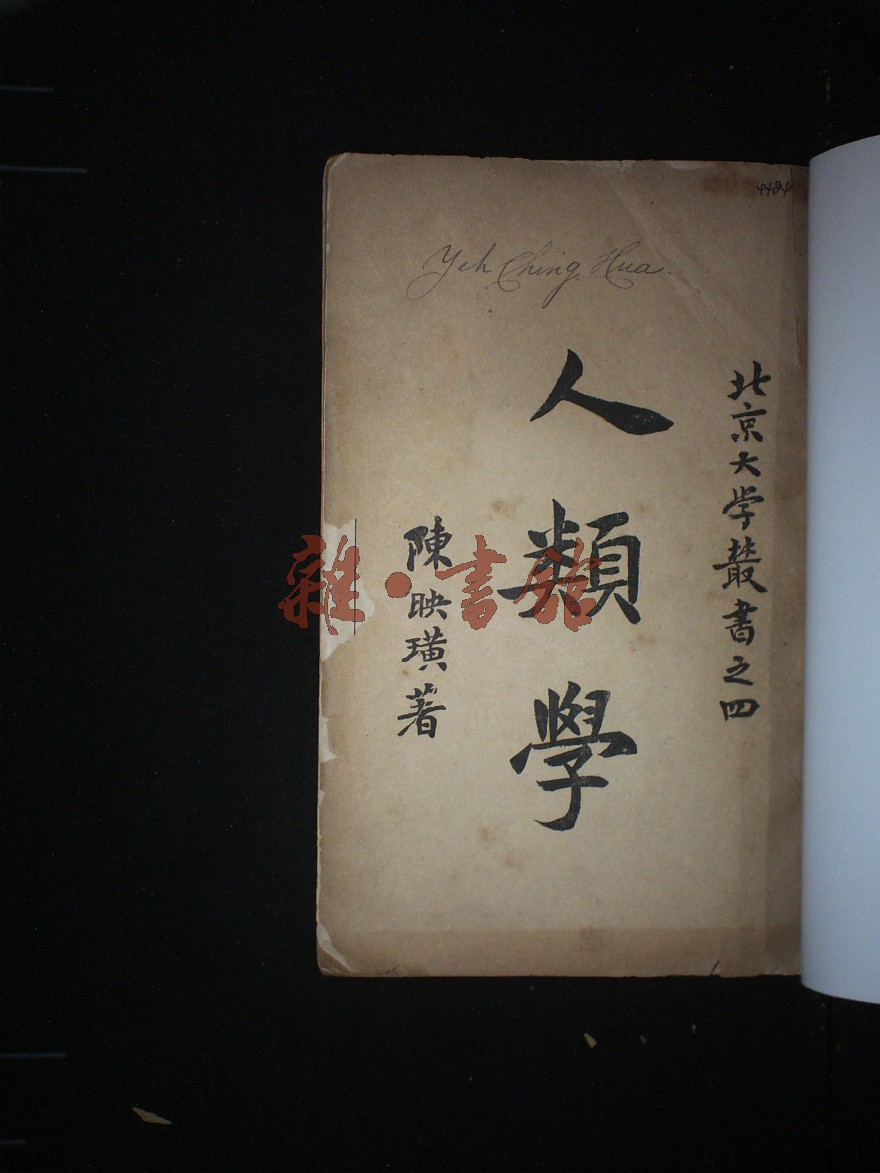 4484
Yeh Ching Hua.
北京大学叢書之四
人類學
陳映璜著
雜·書館